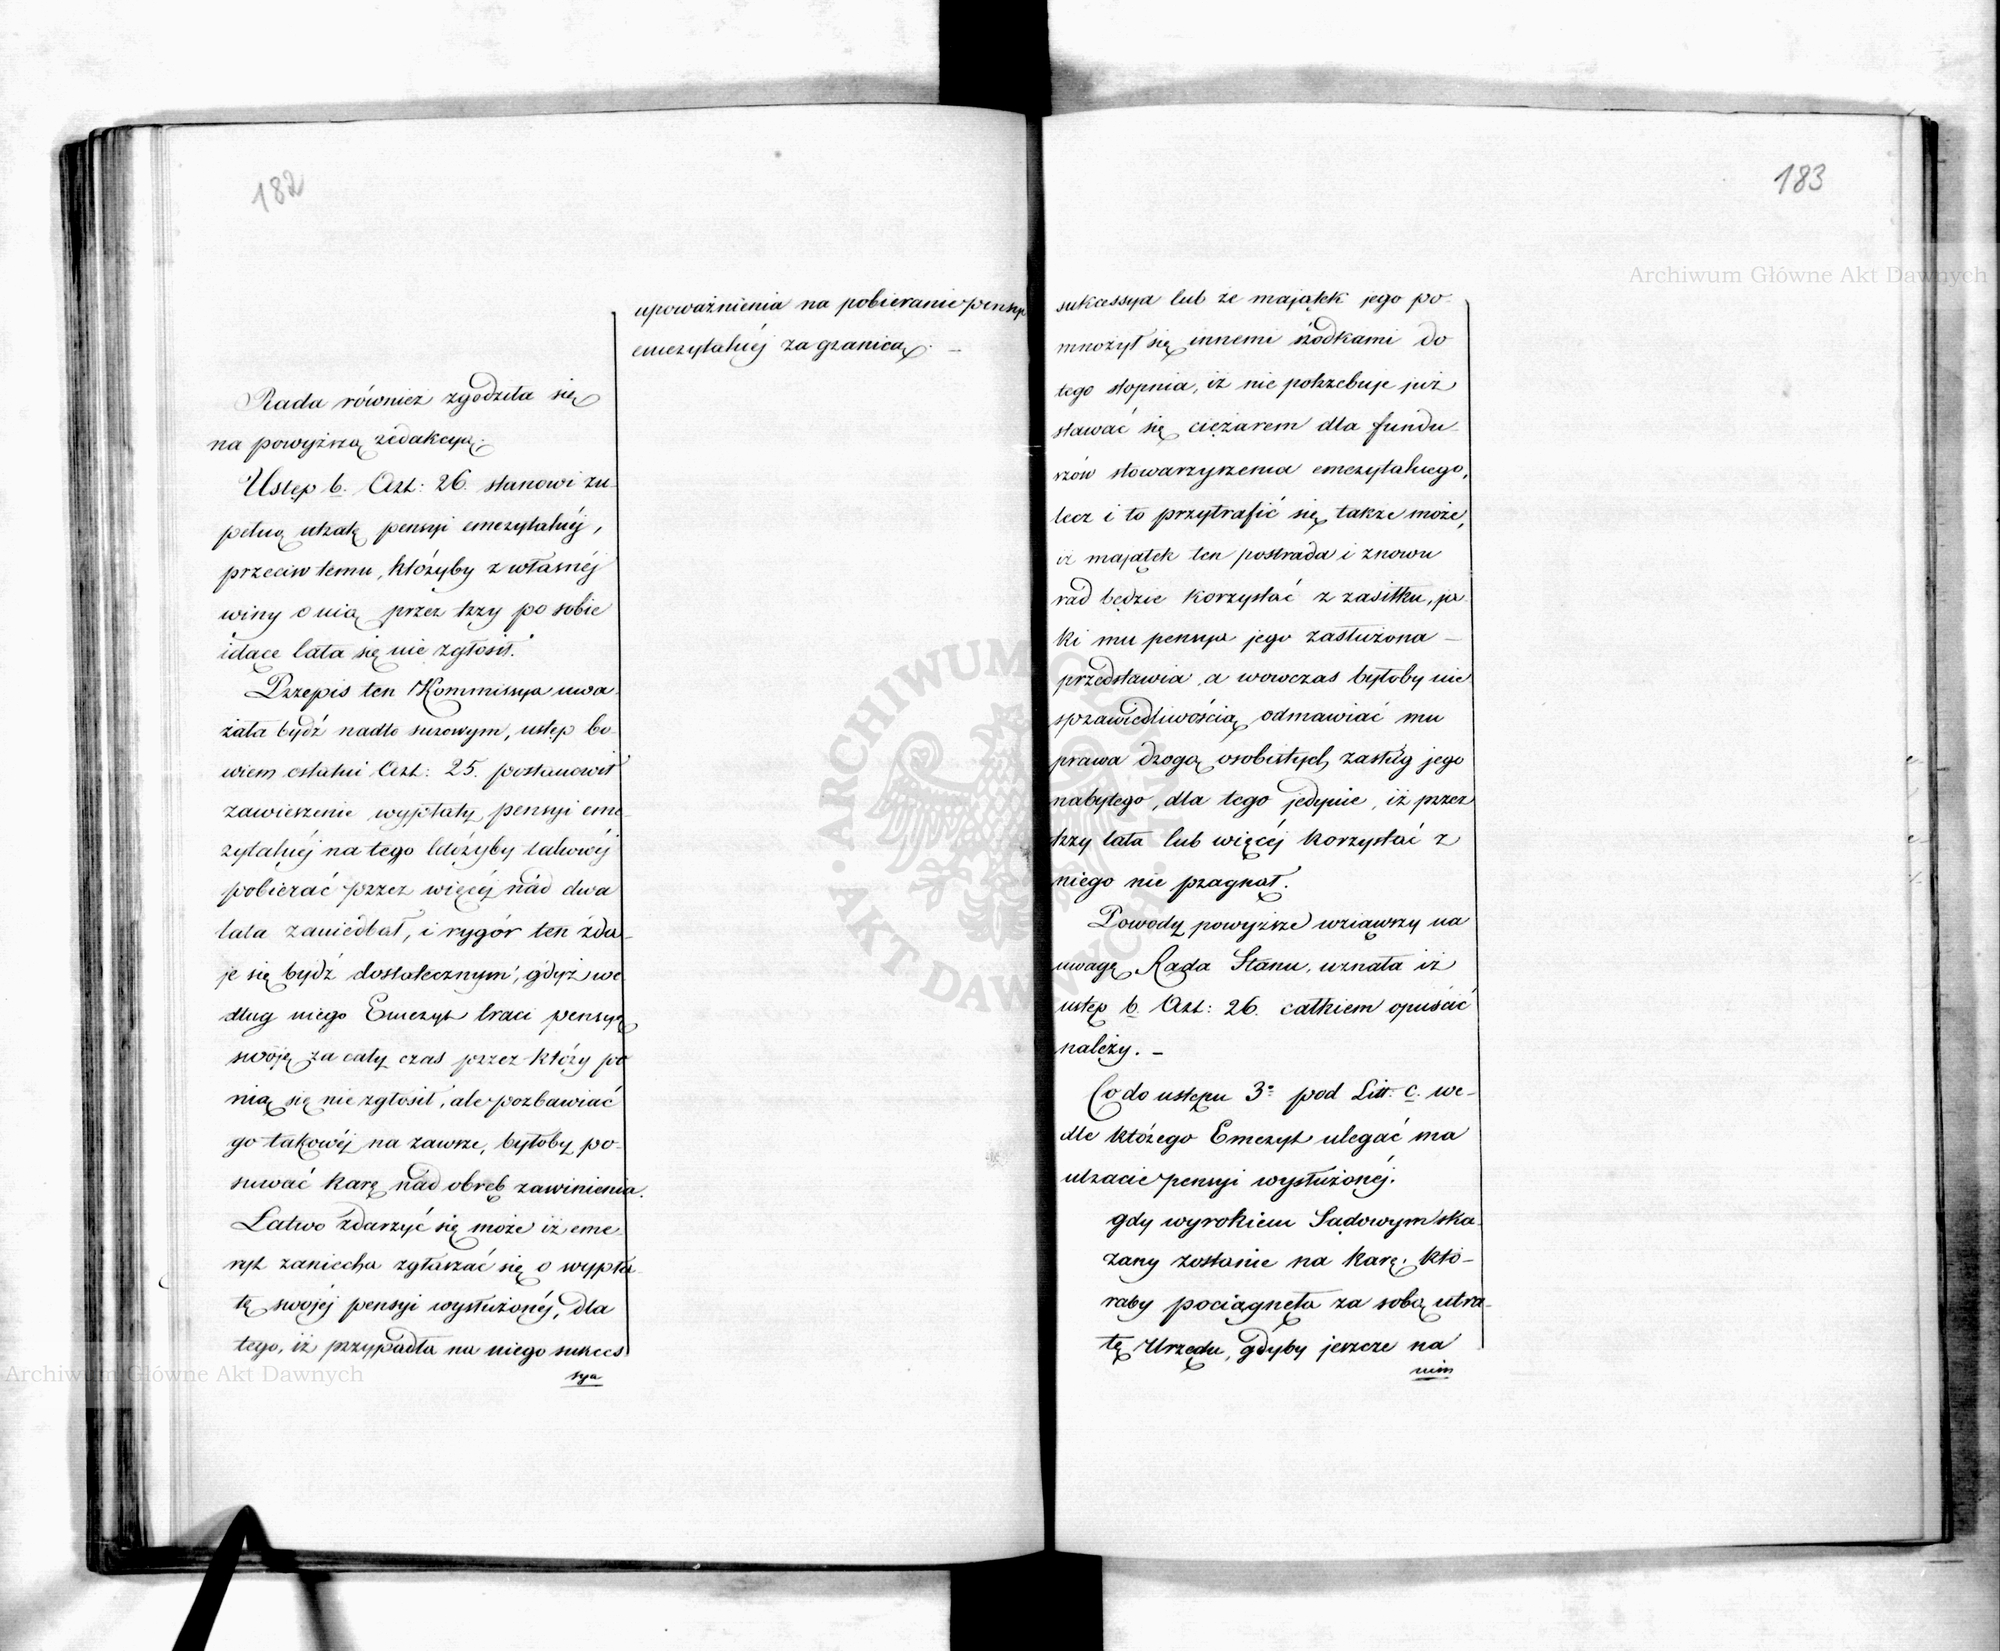 182
upoważnienia na pobieranie pensyi
emerytalnéj za granicą. —
Rada również zgodziła się
na powyższą redakcyą.
Ustęp b. Art: 26. stanowi zu-
pełną utratę pensyi emerytalnéj,
przeciw temu, któryby z własnéj
winy o nią przez trzy po sobie
idące lata się nie zgłosił.
Przepis ten Kommissya uwa-
żała bydź nadto surowym, ustęp bo-
wiem ostatni Art: 25. postanowił
zawieszenie wypłaty pensyi eme-
rytalnéj na tego któryby takowéj
pobierać przez więcéj nad dwa
lata zaniedbał, i rygór ten zda-
je się bydź dostatecznym, gdyż we-
dług niego Emeryt traci pensyą
swoję za cały czas przez który po
nią się nie zgłosił, ale pozbawiać
go takowéj na zawsze, byłoby po-
suwać karę nad obręb zawinienia.
Łatwo zdarzyć się może iż eme-
ryt zaniecha zgłaszać się o wypła-
tę swojéj pensyi wysłużonéj, dla
tego, iż przypadła na niego sukces
sya
183
sukcessya lub że majątek jego po-
mnożył się innemi śzodkami do
tego stopnia, iż nie potrzebuje już
stawać się ciężarem dla fundu-
szów stowarzyszenia emerytalnego,
lecz i to przytrafić się także może,
iż majątek ten postrada i znowu
rad będzie korzystać z zasiłku, ja-
ki mu pensya jego zasłużona —
przedstawia, a wowczas byłoby nie
sprawiedliwością odmawiać mu
prawa drogą osobistych zasług jego
nabytego, dla tego jedynie, iż przez
trzy lata lub więcéj korzystać z
niego nie pragnął.
Powody powyższe wziąwszy na
uwagę Rada Stanu, uznała iż
ustęp b. Art: 26. całkiem opuścić
należy. —
Co do ustępu 3º pod Litt. c. we-
dle którego Emeryt ulegać ma
utracie pensyi wysłużonéj.
gdy wyrokiem Sądowym ska-
zany zostanie na karę, któ-
raby pociągnęła za sobą utra-
tę Urzędu, gdyby jeszcze na
nim
Archiwum Główne Akt Dawnych
Archiwum Główne Akt Dawnych
ARCHIWUM GŁÓWNE AKT DAWNYCH